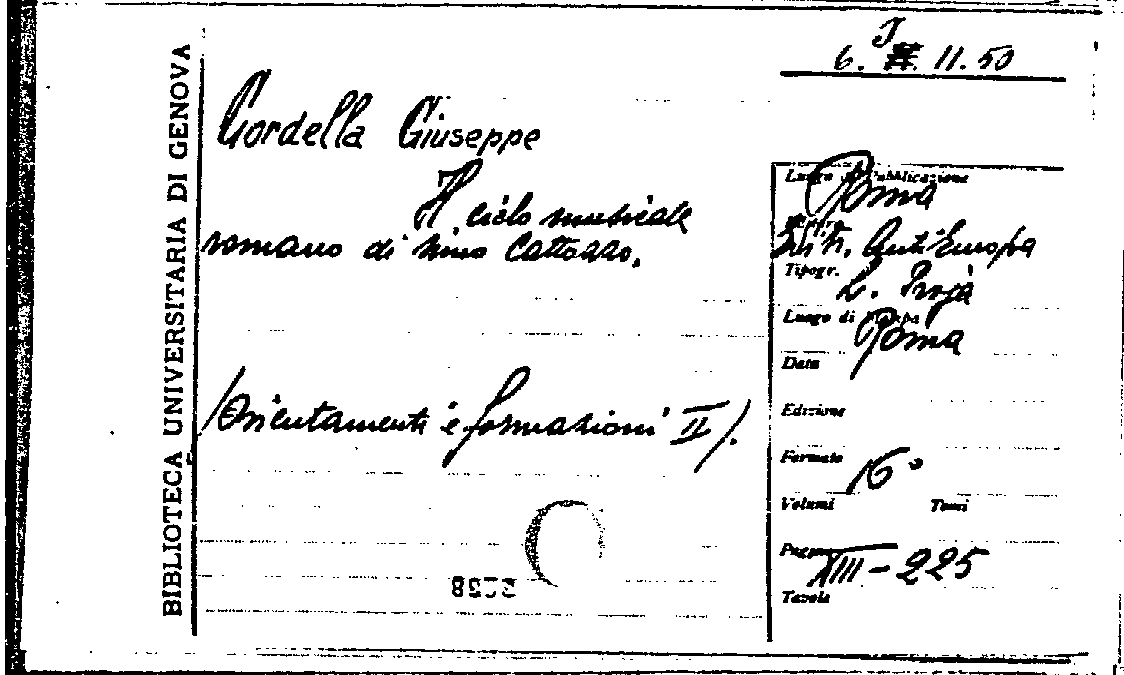 BIBLIOTECA UNIVERSITARIA DI GENOVA
I
6. 11. 50
Cordella Giuseppe
Il ciclo musicale
romano di Nino Cattozzo.
(Orientamenti e formazioni II).
Luogo di Pubblicazione Roma
Edit. AntiEuropa
Tipogr. L. Proja
Luogo di Stampa Roma
Data
Edizione
Formato 16°
Volumi Tomi
Pagine XIII-225
Tavole